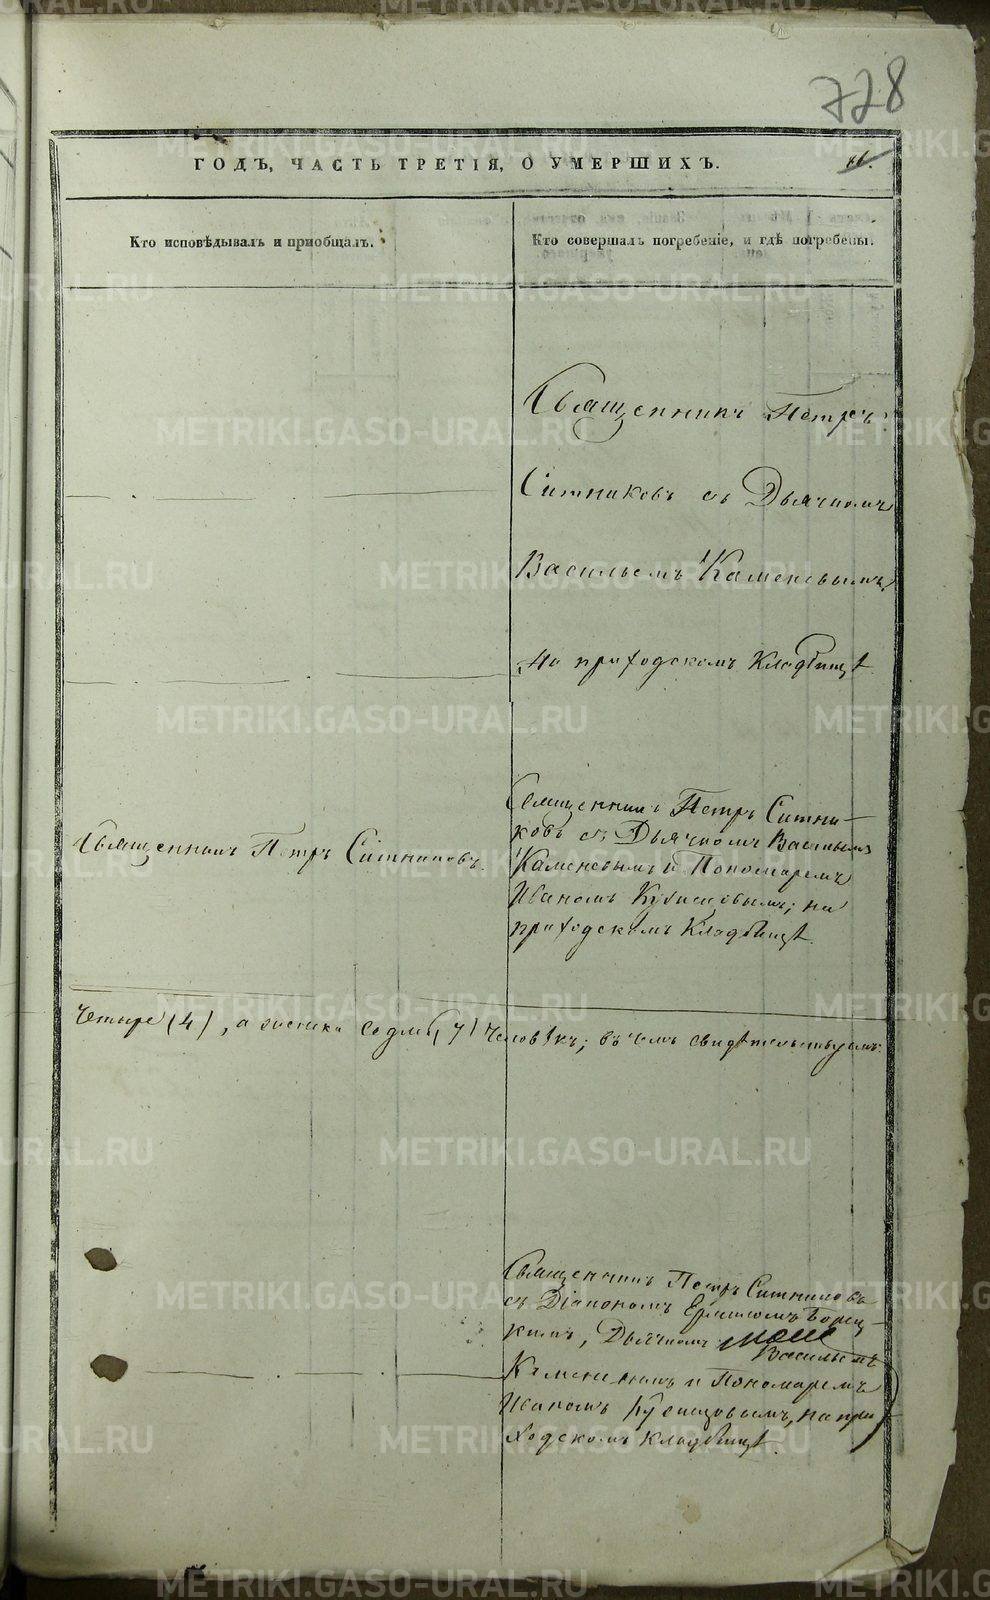 728
ГОДЪ, ЧАСТЬ ТРЕТІЯ, О УМЕРШИХЪ.
Кто исповѣдывалъ и пріобщалъ.
Кто совершалъ погребеніе, и гдѣ погребены.
Священникъ Петръ
Ситниковъ съ Дьячкомъ
Васильемъ Каменевымъ,
на приходскомъ Кладбищѣ
Священникъ Петръ Ситниковъ.
Священникъ Петръ Ситни-
ковъ съ Дьячкомъ Васильемъ
Каменевымъ и Пономаремъ
Иваномъ Кузнецовымъ; на
приходскомъ Кладбищѣ.
Четыре (4), а всего седмь (7) человѣкъ; въ чемъ свидѣтельствуемъ.
Священникъ Петръ Ситниковъ
съ Діакономъ
Дьячкомъ
Васильемъ
и Пономаремъ
Иваномъ Кузнецовымъ, на при-
ходскомъ Кладбищѣ.
METRIKI.GASO-URAL.RU